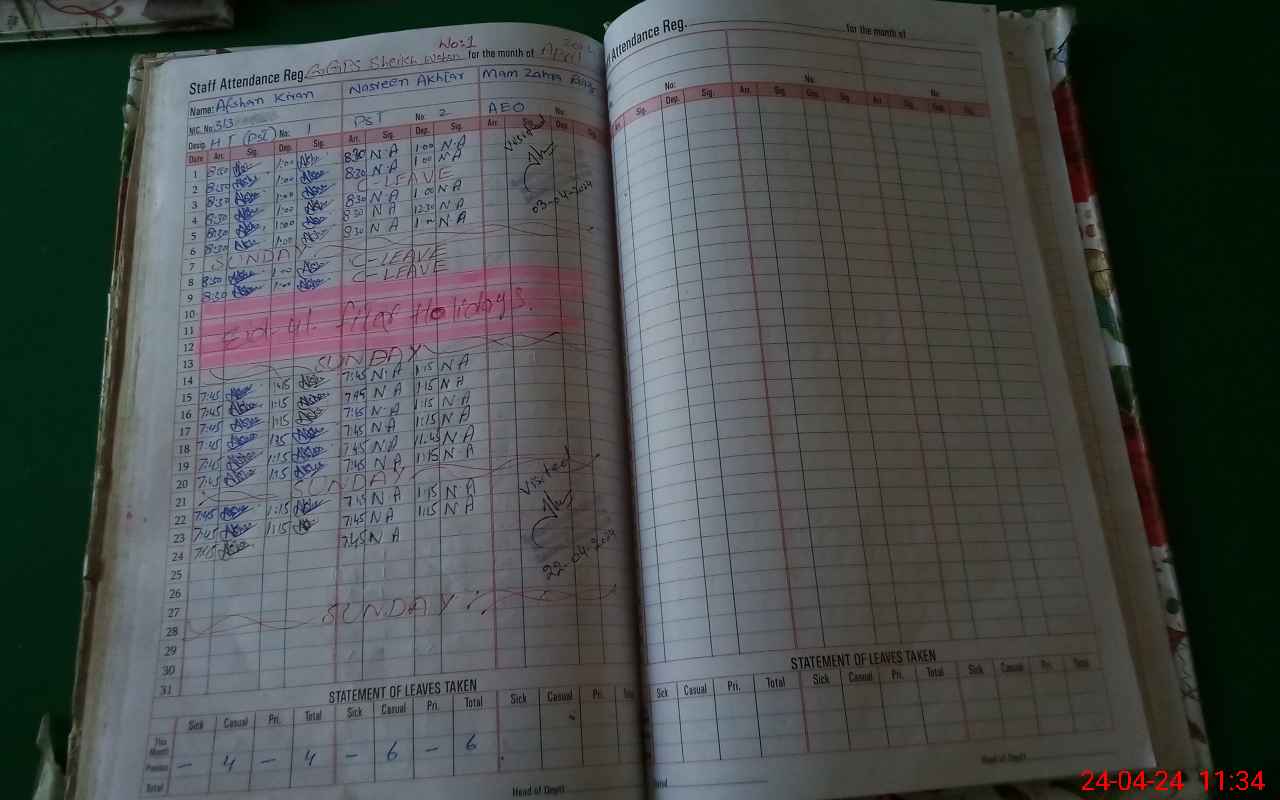 No:1
Staff Attendance Reg. GGPS Sheikh Wahan for the month of April
Name: Afshan Kiran Nasreen Akhtar Mam Zahra
NIC. No. 313
Desig. H T (PST) No: 1 PST No: 2 AEO No:
Date Arr. Sig. Dep. Sig. Arr. Sig. Dep. Sig. Arr. Sig. Dep. Sig.
1 8:30 1:00 8:30 N.A 1:00 N.A
2 8:30 1:00 8:30 N.A 1:00 N.A
3 8:30 1:00 C-LEAVE
4 8:30 1:00 8:30 N A 1:00 N A
5 8:30 1:00 8:30 N A 12:30 N A
6 8:30 1:00 8:30 N A N A
Visited
03-04-2024
7 SUNDAY
8 8:30 1:00 C-LEAVE
9 8:30 C-LEAVE
10
11 Eid-ul-fiter Holidays.
12
13
14 SUNDAY
15 7:45 1:15 7:45 N.A 1:15 N A
16 7:45 1:15 7:45 N.A 1:15 N A
17 7:45 1:15 7:45 N.A 1:15 N A
18 7:45 7:45 N A 1:15 N A
19 7:45 1:15 7:45 N.A 11:45 N A
20 7:45 1:15 7:45 N A 1:15 N A
21 SUNDAY
22 7:45 1:15 7:45 N A 1:15 N A
23 7:45 1:15 7:45 N A 1:15 N A
24 7:45 7:45 N A
Visited
22-04-2024
25
26
27
28 SUNDAY
29
30
31
STATEMENT OF LEAVES TAKEN
Sick Casual Pri. Total Sick Casual Pri. Total Sick Casual Pri. Total
This Month
Previous – 4 – 4 – 6 – 6
Total
Head of Deptt
Attendance Reg. for the month of
No: No: No:
Dep. Sig. Arr. Sig. Dep. Sig. Arr. Sig. Dep. Sig.
STATEMENT OF LEAVES TAKEN
Sick Casual Pri. Total Sick Casual Pri. Total Sick Casual Pri. Total
Head of Deptt
24-04-24 11:34